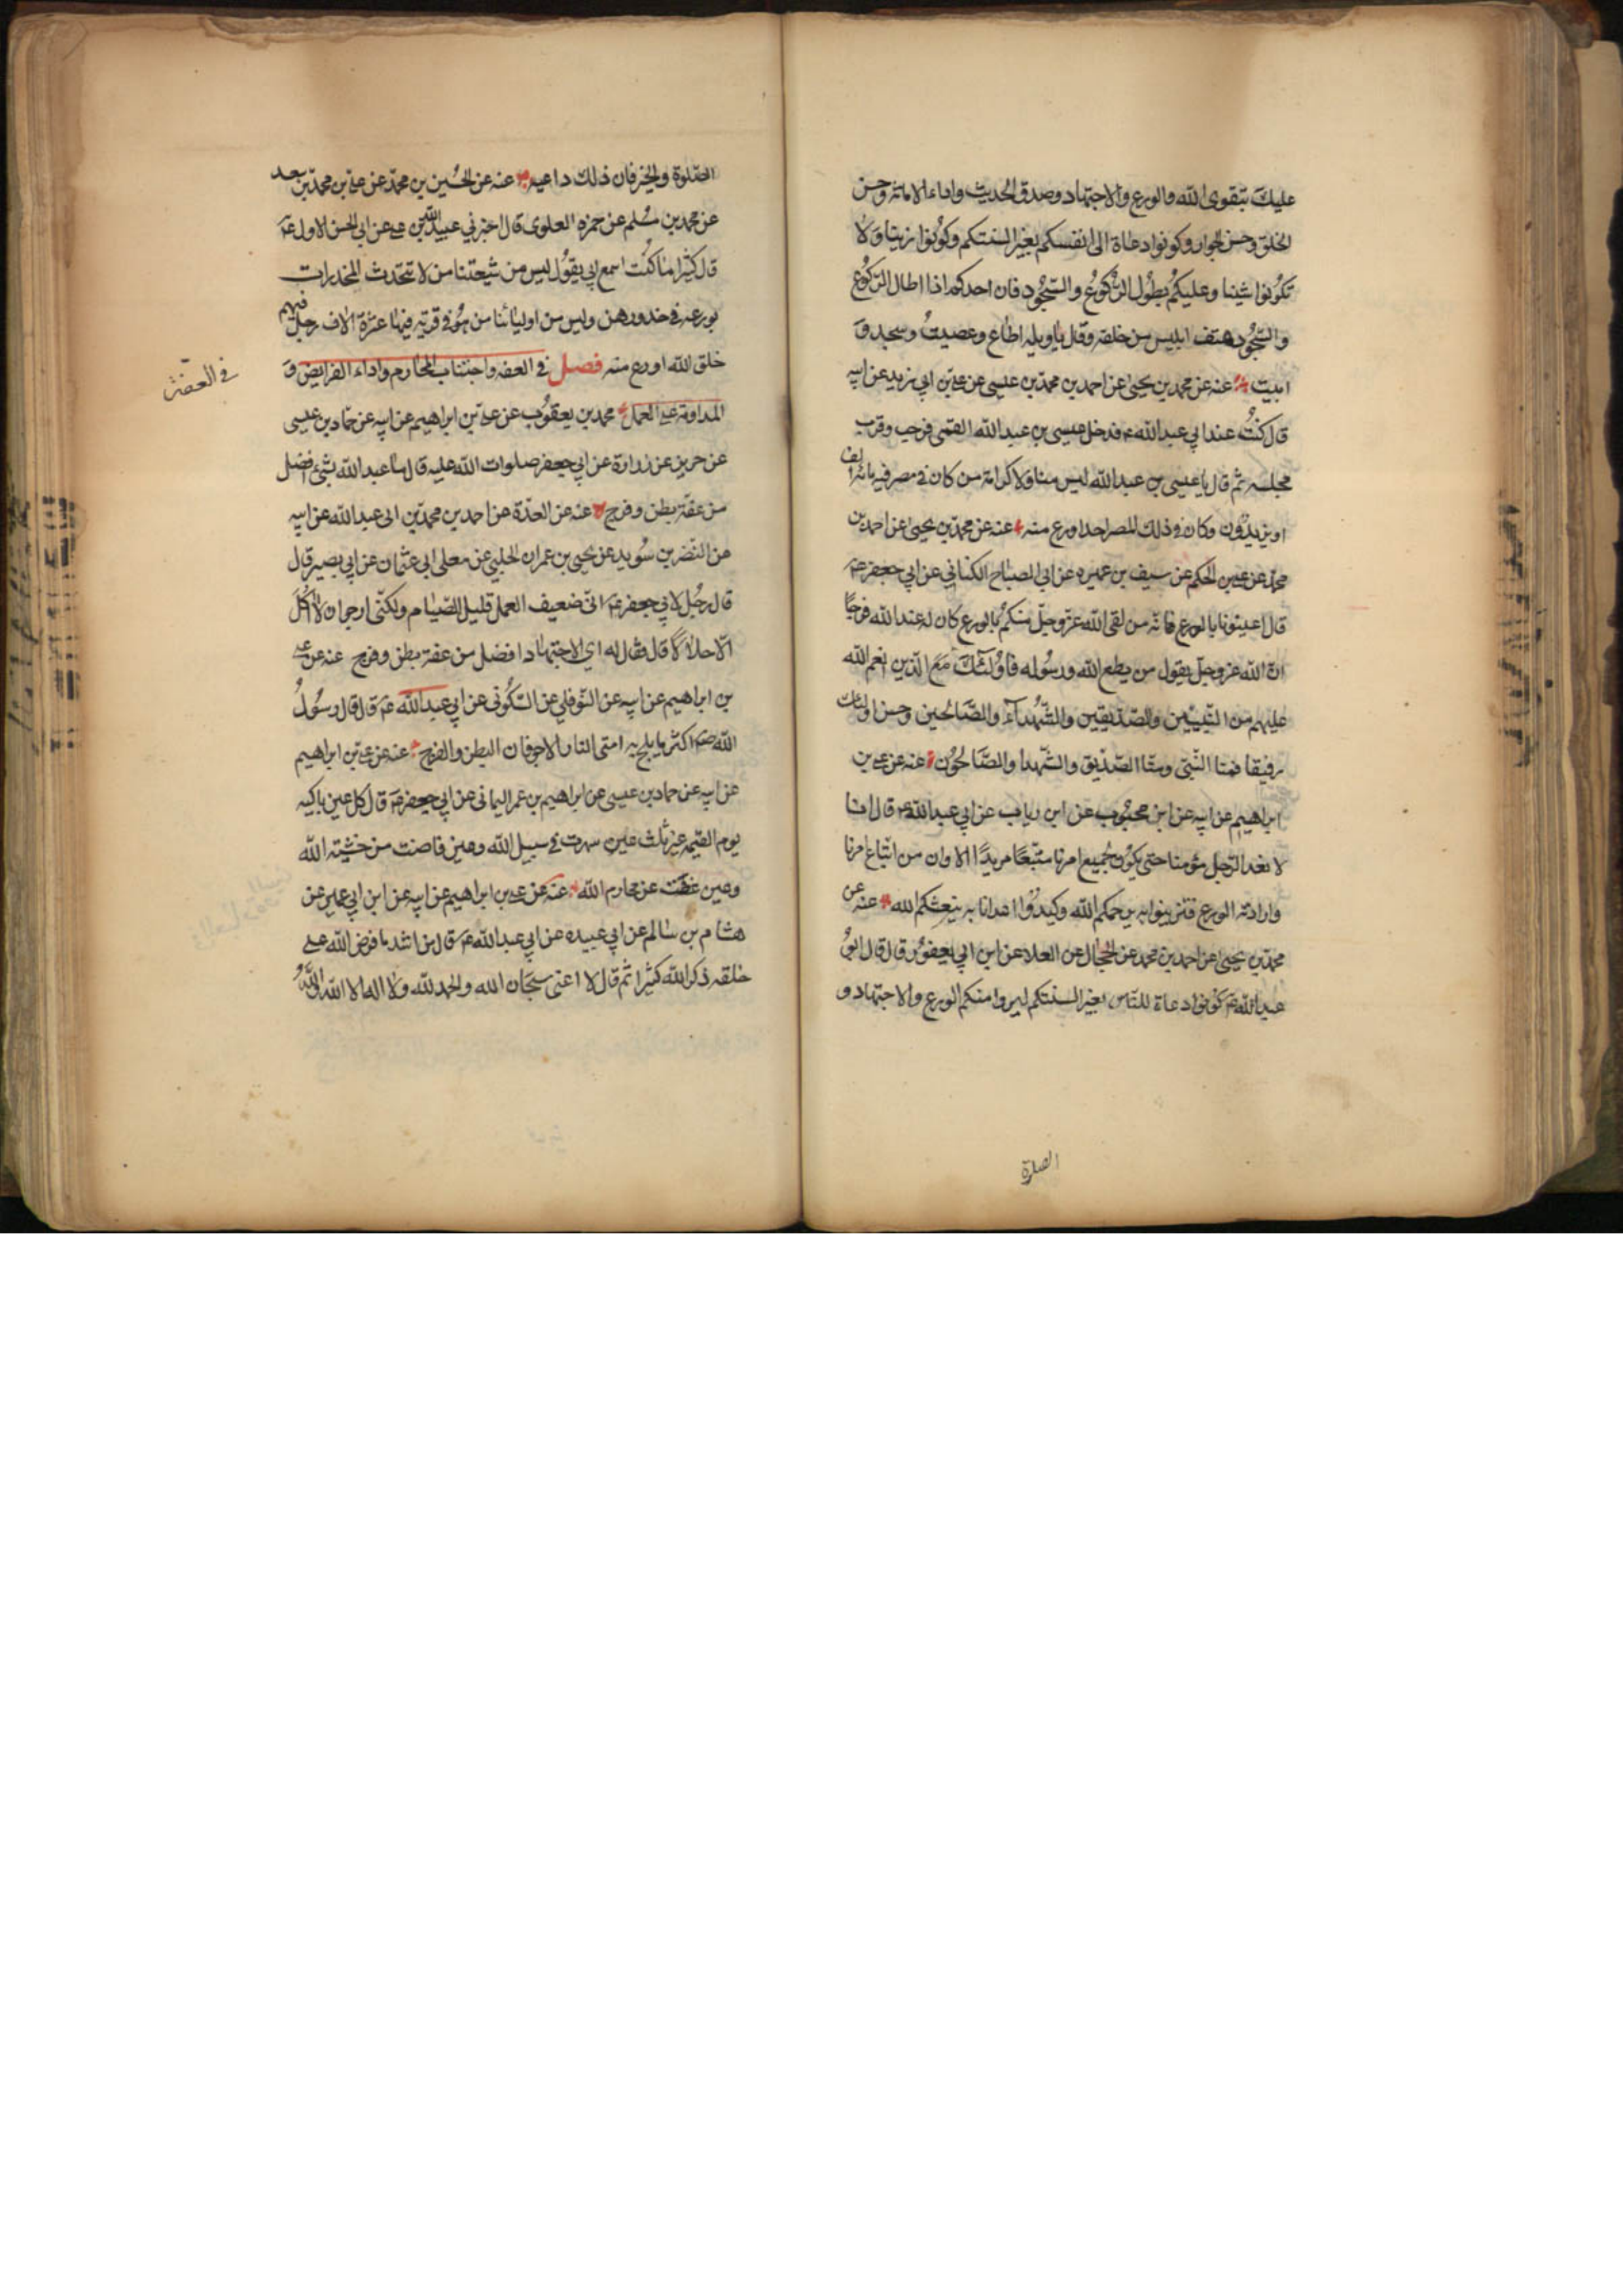 عليك بتقوى الله والورع والاجتهاد وصدق الحديث واداء الامانة وحسن
الخلق وحسن الجوار وكونوا دعاة الى انفسكم بغير السنتكم وكونوا زينا ولا
تكونوا شينا وعليكم بطول الركوع والسجود فان احدكم اذا اطال الركوع
والسجود هتف ابليس من خلفه وقال ياويله اطاع وعصيت وسجد و
ابيت عنه عن محمد بن يحيى عن احمد بن محمد بن عيسى عن علي بن ابي زيد عن ابيه
قال كنت عند ابي عبد الله ع فدخل عيسى بن عبد الله القمى فرحب وقرب
مجلسه ثم قال يا عيسى بن عبد الله ليس منا ولا كرامة من كان في مصر فيه مائة الف
او يزيدون وكان في ذلك المصر احد اورع منه عنه عن محمد بن يحيى عن احمد بن
محمد عن علي بن الحكم عن سيف بن عميره عن ابي الصباح الكناني عن ابي جعفر ع
قال اعينونا بالورع فانه من لقى الله عز وجل منكم بالورع كان له عند الله فرجا
ان الله عز وجل يقول من يطع الله ورسوله فاولئك مع الذين انعم الله
عليهم من النبيين والصديقين والشهداء والصالحين وحسن اولئك
رفيقا فمنا النبى ومنا الصديق والشهدا والصالحون عنه عن علي بن
ابراهيم عن ابيه عن ابن محبوب عن ابن رياب عن ابي عبد الله ع قال انا
لا نعد الرجل مؤمنا حتى يكون لجميع امرنا متبعا مريدا الا وان من اتباع امرنا
وارادته الورع فتزينوا به يرحمكم الله وكيدوا اعدانا به ينعشكم الله عنه عن
محمد بن يحيى عن احمد بن محمد عن الحجال عن العلا عن ابن ابي يعفور قال قال ابو
عبد الله ع كونوا دعاة للناس بغير السنتكم ليروا منكم الورع والاجتهاد و
الصلوة
الصلوة والخير فان ذلك داعيه عنه عن الحسين بن محمد عن علي بن محمد بن سعد
عن محمد بن مسلم عن حمزه العلوى قال اخبرني عبيد الله بن علي عن ابي الحسن الاول ع
قال كثيرا ما كنت اسمع ابي يقول ليس من شيعتنا من لا تتحدث المخدرات
بورعه في خدورهن وليس من اوليائنا من هو في قرية فيها عشرة الاف رجل فيهم
خلق الله اورع منه فصل في العفه واجتناب المحارم واداء الفرايض و
في العفة
المداومة على العمل محمد بن يعقوب عن علي بن ابراهيم عن ابيه عن حماد بن عيسى
عن حريز عن زرارة عن ابي جعفر صلوات الله عليه قال ما عبد الله بشئ افضل
من عفة بطن وفرج عنه عن العدة عن احمد بن محمد بن ابى عبد الله عن ابيه
عن النضر بن سويد عن يحيى بن عمران الحلبي عن معلى ابى عثمان عن ابي بصير قال
قال رجل لابي جعفر ع انى ضعيف العمل قليل الصيام ولكنى ارجو ان لا اكل
الا حلالا قال فقال له اي الاجتهاد افضل من عفة بطن وفرج عنه عن علي
بن ابراهيم عن ابيه عن النوفلي عن السكونى عن ابي عبد الله ع قال قال رسول
الله ص اكثر ما يلج به امتى النار الاجوفان البطن والفرج عنه عن علي بن ابراهيم
عن ابيه عن حماد بن عيسى عن ابراهيم بن عمر اليمانى عن ابي جعفر ع قال كل عين باكيه
يوم القيمه غير ثلث عين سهرت في سبيل الله وعين فاضت من خشية الله
وعين غضت عن محارم الله عنه عن علي بن ابراهيم عن ابيه عن ابن ابي عمير عن
هشام بن سالم عن ابي عبيده عن ابي عبد الله ع قال من اشد ما فرض الله على
خلقه ذكر الله كثيرا ثم قال لا اعنى سبحان الله والحمد لله ولا اله الا الله والله